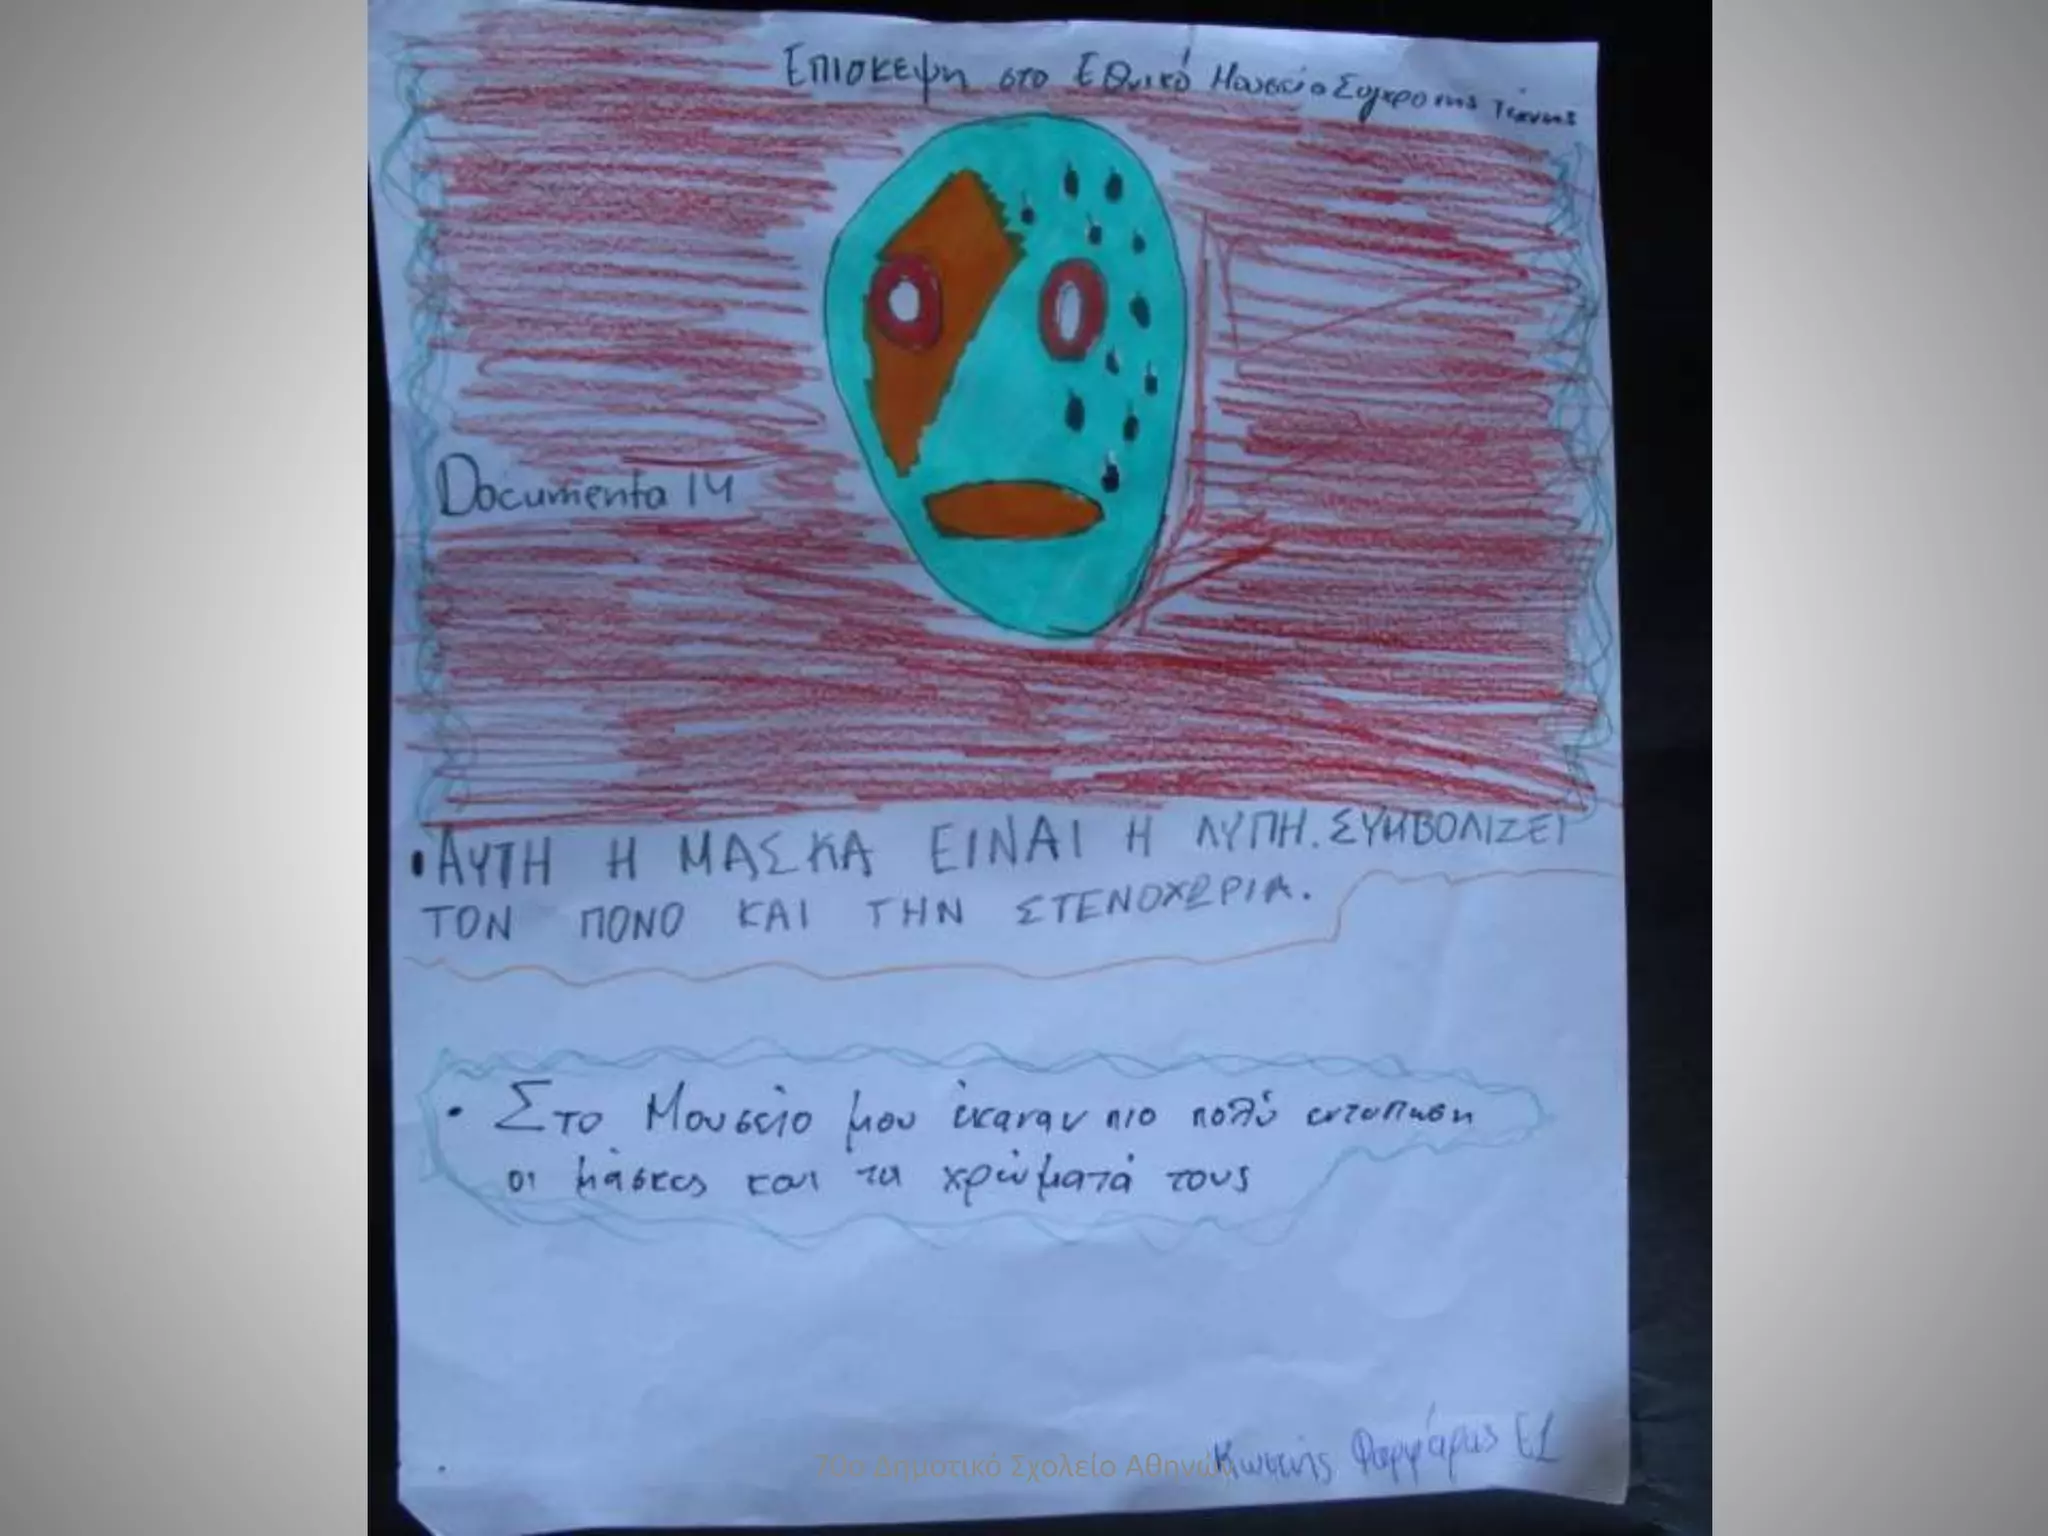 Επισκεψη στο Εθνικό Μουσείο Σύγχρονης Τέχνης
Documenta 14
• ΑΥΤΗ Η ΜΑΣΚΑ ΕΙΝΑΙ Η ΛΥΠΗ. ΣΥΜΒΟΛΙΖΕΙ
ΤΟΝ ΠΟΝΟ ΚΑΙ ΤΗΝ ΣΤΕΝΟΧΩΡΙΑ.
• Στο Μουσείο μου έκαναν πιο πολύ εντυπωση
οι μάσκες και τα χρώματά τους
Κωστής Ε1
70ο Δημοτικό Σχολείο Αθηνών